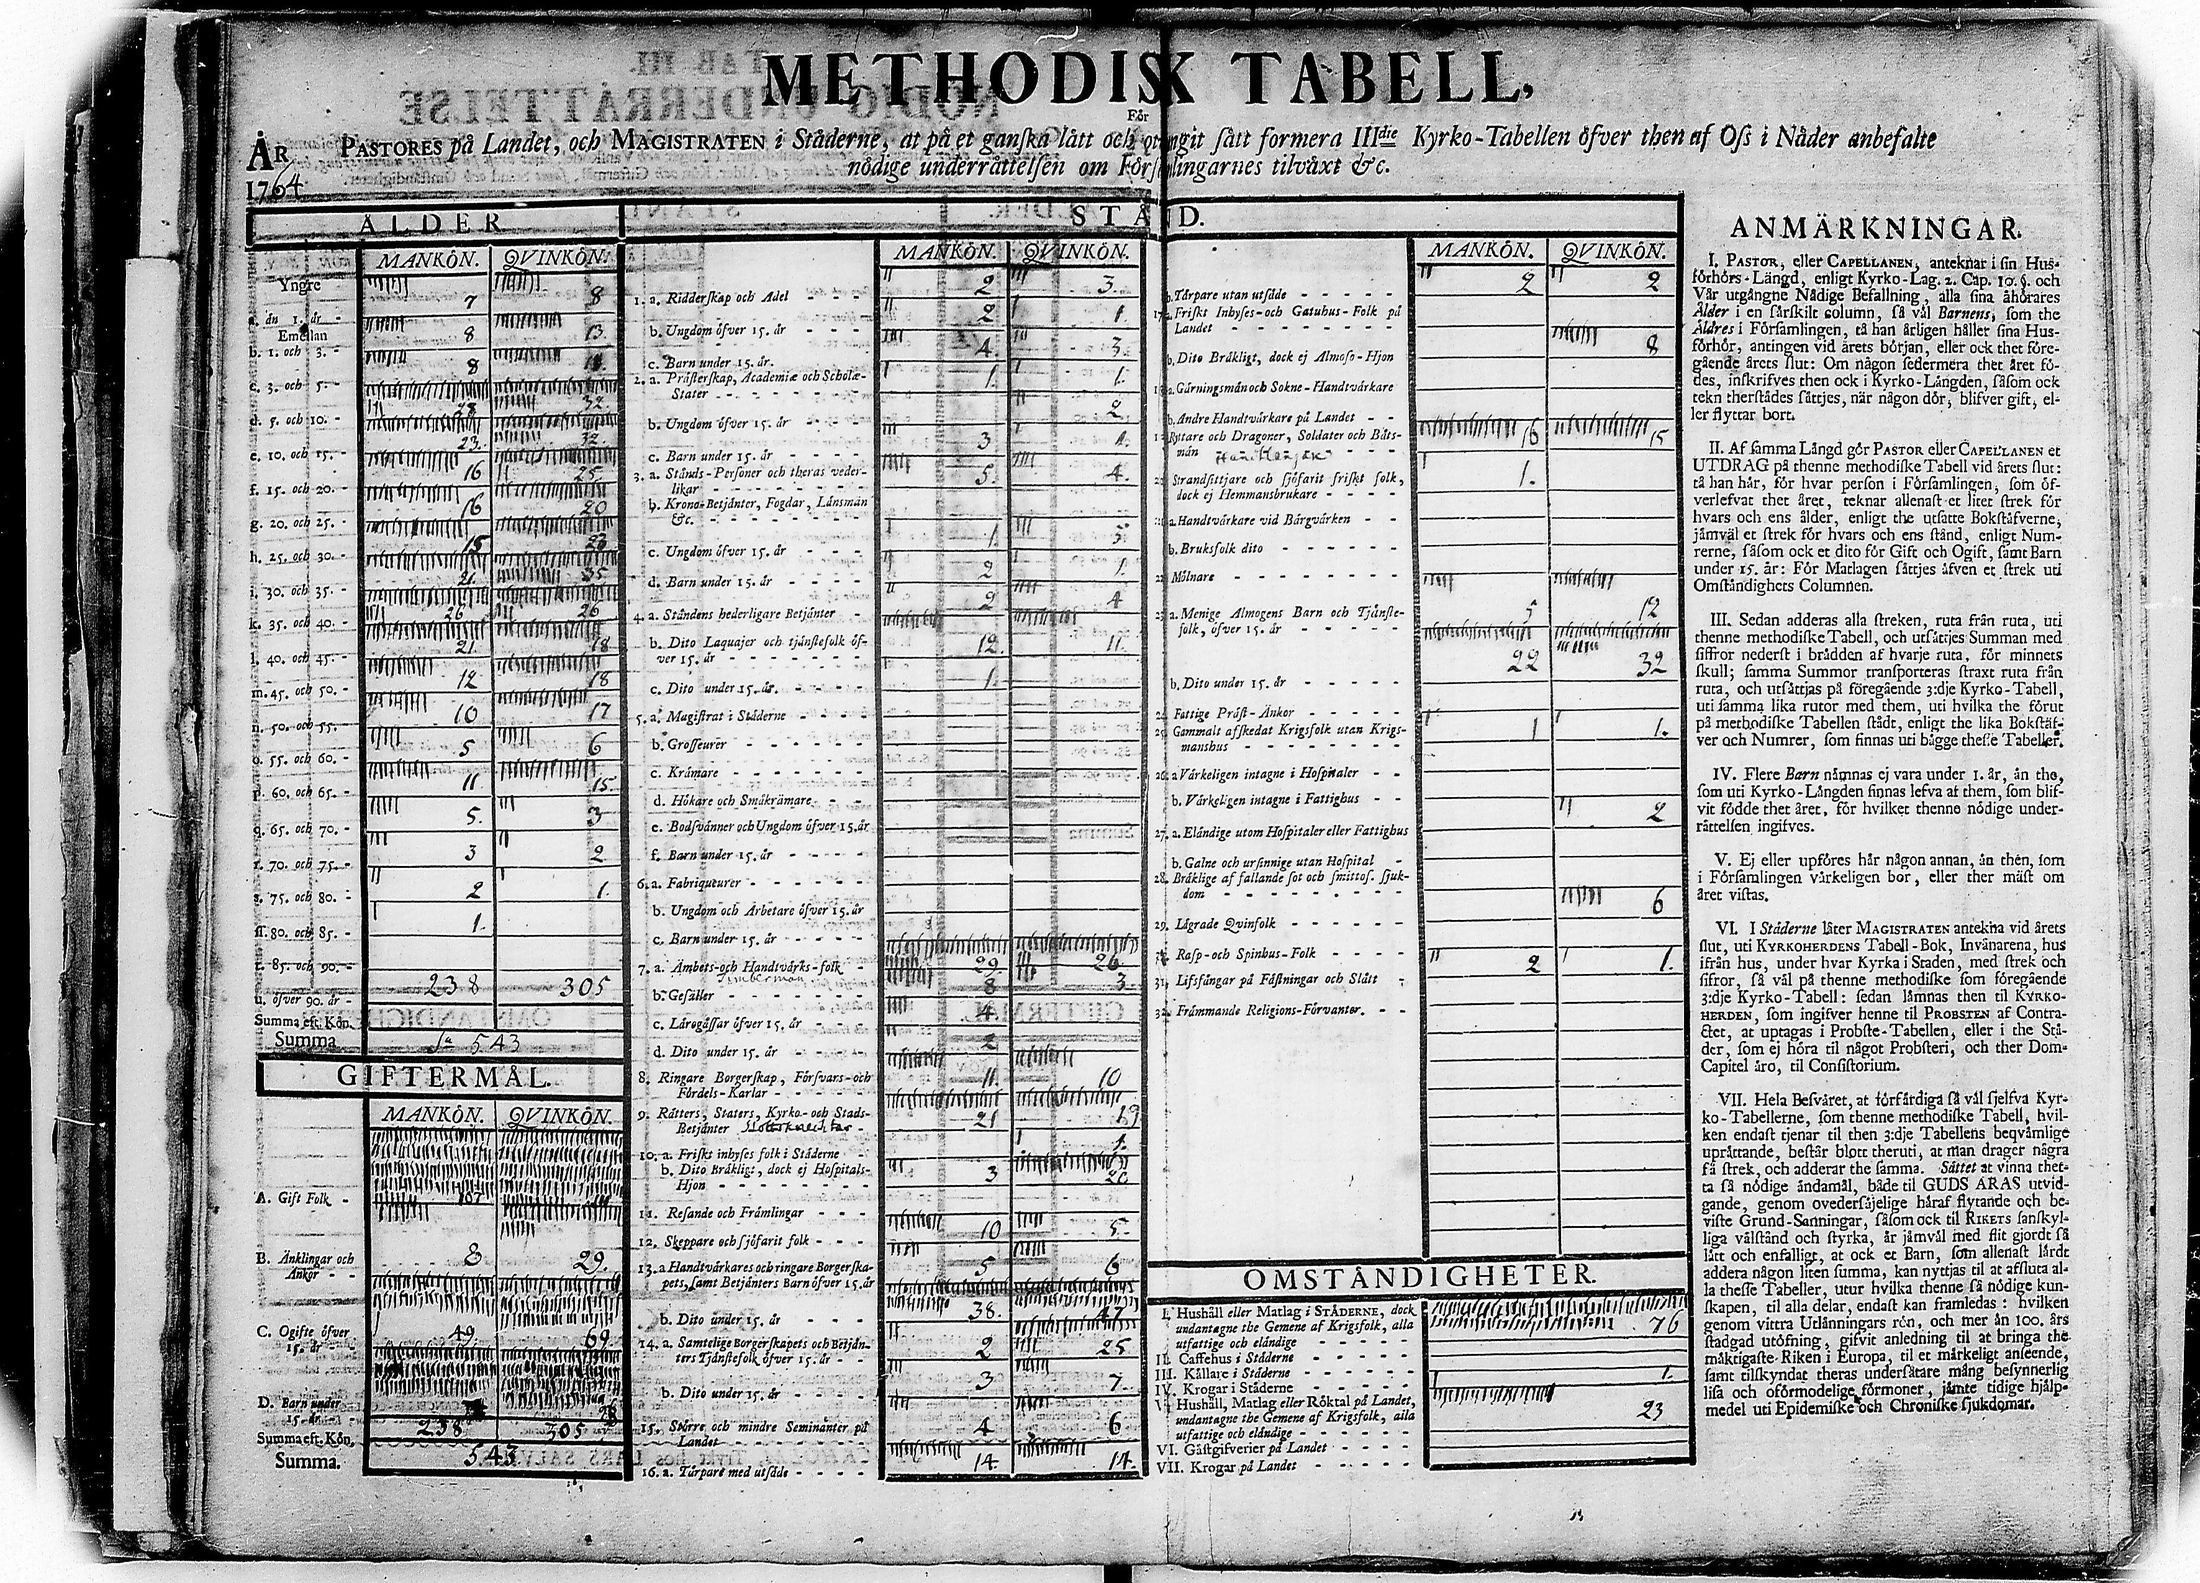 METHODISK TABELL,
För
ÅR PASTORES på Landet, och MAGISTRATEN i Ståderne, at på et ganska lått och otvungit sått formera IIIdie Kyrko-Tabellen öfver then af Oss i Nåder anbefalte
1764. nödige underråttelsen om Församlingarnes tilvåxt &c.
ÅLDER
MANKÖN. QVINKÖN.
Yngre
a. ån 1. år - 7 8
Emellan
b. 1. och 3. - 8 13.
c. 3. och 5. - 8
d. 5. och 10. - 28 32
e. 10. och 15. - 23. 32.
f. 15. och 20. - 16 25.
g. 20. och 25. - 16 20
h. 25. och 30. - 15 23
i. 30. och 35. - 21. 35
k. 35. och 40. - 26 26
l. 40. och 45. - 21. 18
m. 45. och 50. - 12 18
n. 50. och 55. - 10 17
o. 55. och 60. - 5 6
p. 60. och 65. - 11. 15.
q. 65. och 70. - 5. 3
r. 70. och 75. - 3 2
s. 75. och 80. - 2 1.
ss. 80. och 85. - 1.
t. 85. och 90. -
u. öfver 90. år - 238 305
Summa eft. Kön.
Summa Sa 543
GIFTERMÅL.
MANKÖN. QVINKÖN.
A. Gift Folk - 107
B. Änklingar och
Änkor - - 8 29.
C. Ogifte öfver
15. år - - 49. 69.
D. Barn under
15. år -
Summa eft. Kön. 238 305
Summa. 543.
STÅND.
MANKÖN. QVINKÖN.
1. a. Ridderskap och Adel - - - 2 3.
b. Ungdom öfver 15. år - - - - 2 1.
c. Barn under 15. år. 4. 3.
2. a. Pråsterskap, Academiæ och Scholæ-
Stater - - - - - - - - 1. 1.
b. Ungdom öfver 15. år - - - - 2
c. Barn under 15. år - - - - 3 1.
3. a. Stånds-Personer och theras veder-
likar - - - - - - - - 5. 4.
b. Krono-Betjånter, Fogdar, Lånsmån
&c. - - - - - - - -
c. Ungdom öfver 15. år - - - - 1. 5
d. Barn under 15. år - - - - 2 1.
4. a. Ståndens hederligare Betjånter - 2 4
b. Dito Laquajer och tjånstefolk öf-
ver 15. år - - - - - - - 12. 11.
c. Dito under 15. år. - - - - 1.
5. a. Magistrat i Ståderne - - - -
b. Grosseurer - - - - - -
c. Kråmare - - - - - -
d. Hökare och Småkråmare - - -
e. Bodsvånner och Ungdom öfver 15. år
f. Barn under 15. år - - - -
6. a. Fabriqueurer - - - - - -
b. Ungdom och Arbetare öfver 15. år
c. Barn under 15. år - - - -
7. a. Åmbets-och Handtvårks-folk - 29. 26
b. Gesåller - - - - 8 3.
c. Lårogåssar öfver 15. år - - 4
d. Dito under 15. år - - - - 2
8. Ringare Borgerskap, Försvars-och
Fördels-Karlar - - - - - 11. 10
9. Råtters, Staters, Kyrko- och Stads-
Betjånter Slottsknechtar - 21 19
10. a. Friskt inhyses folk i Ståderne - 1.
b. Dito Bråkligt, dock ej Hospitals-
Hjon - - - - - - - 3 20
11. Resande och Fråmlingar - - -
12. Skeppare och sjöfarit folk - - - 10 5.
13. a Handtvårkares och ringare Borgerska-
pets, samt Betjånters Barn öfver 15. år 5 6
b. Dito under 15. år - - - - 38. 47
14. a. Samtelige Borgerskapets och Betjån-
ters Tjånstefolk öfver 15. år - - 2 25
b. Dito under 15. år - - - - 3 7.
15. Större och mindre Seminånter på
Landet - - - - - - - 4 6
16. a. Torpare med utsåde - - - - 14 14.
MANKÖN. QVINKÖN.
b. Torpare utan utsåde - - - - - 2 2
17. a. Friskt Inhyses-och Gatuhus-Folk på
Landet - - - - - - -
b. Dito Bråkligt, dock ej Almoso-Hjon 8
a. Gårningsmån och Sokne-Handtvårkare
b. Andre Handtvårkare på Landet - -
Ryttare och Dragoner, Soldater och Båts-
mån 16 15
Strandsittjare och sjöfarit friskt folk,
dock ej Hemmansbrukare - - - - 1.
21. a. Handtvårkare vid Bårgvårken - -
b. Bruksfolk dito - - - - - -
22. Mölnare - - - - - - - -
23. a. Menige Almogens Barn och Tjånste-
folk, öfver 15. år - - - - - 5 12
b. Dito under 15. år - - - - - 22 32
24. Fattige Pråst-Ånkor - - - -
25. Gammalt afskedat Krigsfolk utan Krigs-
manshus - - - - - - - - 1 1.
26. a Vårkeligen intagne i Hospitaler - -
b. Vårkeligen intagne i Fattighus - -
27. a. Elåndige utom Hospitaler eller Fattighus 2
b. Galne och ursinnige utan Hospital -
28. Bråklige af fallande sot och smittos. sjuk-
dom - - - - - - - -
29. Lågrade Qvinfolk - - - - - 6
30. Rasp-och Spinhus-Folk - - - -
31. Lifsfångar på Fåstningar och Slått - 2 1.
32. Fråmmande Religions-Förvanter. - -
OMSTÅNDIGHETER.
I. Hushåll eller Matlag i STÅDERNE, dock
undantagne the Gemene af Krigsfolk, alla
utfattige och elåndige - - - - - 76
II. Caffehus i Ståderne - - - - -
III. Kållare i Ståderne - - - - -
IV. Krogar i Ståderne - - - - - 1.
V. Hushåll, Matlag eller Röktal på Landet,
undantagne the Gemene af Krigsfolk, alla
utfattige och elåndige - - - - - 23
VI. Gåstgifverier på Landet - - - -
VII. Krogar på Landet - - - - -
ANMÄRKNINGAR.
I. PASTOR, eller CAPELLANEN, anteknar i sin Hus-
förhörs-Långd, enligt Kyrko-Lag. 2. Cap. 10. §. och
Vår utgångne Nådige Befallning, alla sina åhörares
Ålder i en sårskilt column, så vål Barnens, som the
Åldres i Församlingen, tå han årligen håller sina Hus-
förhör, antingen vid årets början, eller ock thet före-
gående årets slut: Om någon sedermera thet året fö-
des, inskrifves then ock i Kyrko-Långden, såsom ock
tekn therstådes såttjes, når någon dör, blifver gift, el-
ler flyttar bort.
II. Af samma Långd gör PASTOR eller CAPELLANEN et
UTDRAG på thenne methodiske Tabell vid årets slut:
tå han hår, för hvar person i Församlingen, som öf-
verlefvat thet året, teknar allenast et litet strek för
hvars och ens ålder, enligt the utsatte Bokståfverne,
jåmvål et strek för hvars och ens stånd, enligt Num-
rerne, såsom ock et dito för Gift och Ogift, samt Barn
under 15. år: För Matlagen såttjes åfven et strek uti
Omståndighets Columnen.
III. Sedan adderas alla streken, ruta från ruta, uti
thenne methodiske Tabell, och utsåttjes Summan med
siffror nederst i brådden af hvarje ruta, för minnets
skull; samma Summor transporteras straxt ruta från
ruta, och utsåttjas på föregående 3:dje Kyrko-Tabell,
uti samma lika rutor med them, uti hvilka the förut
på methodiske Tabellen stådt, enligt the lika Bokståf-
ver och Numrer, som finnas uti bågge thesse Tabeller.
IV. Flere Barn nåmnas ej vara under 1. år, ån the,
som uti Kyrko-Långden finnas lefva af them, som blif-
vit födde thet året, för hvilket thenne nödige under-
råttelsen ingifves.
V. Ej eller upföres hår någon annan, ån then, som
i Församlingen vårkeligen bor, eller ther måst om
året vistas.
VI. I Ståderne låter MAGISTRATEN antekna vid årets
slut, uti KYRKOHERDENS Tabell-Bok, Invånarena, hus
ifrån hus, under hvar Kyrka i Staden, med strek och
sifror, så vål på thenne methodiske som föregående
3:dje Kyrko-Tabell: sedan låmnas then til KYRKO-
HERDEN, som ingifver henne til PROBSTEN af Contra-
ctet, at uptagas i Probste-Tabellen, eller i the Stå-
der, som ej höra til något Probsteri, och ther Dom-
Capitel åro, til Consistorium.
VII. Hela Besvåret, at förfårdiga så vål sjelfva Kyr-
ko-Tabellerne, som thenne methodiske Tabell, hvil-
ken endast tjenar til then 3:dje Tabellens beqvåmlige
upråttande, består blott theruti, at man drager några
få strek, och adderar the samma. Såttet at vinna thet-
ta så nödige åndamål, både til GUDS ÅRAS utvid-
gande, genom ovedersåjelige håraf flytande och be-
viste Grund-Sanningar, såsom ock til RIKETS sanskyl-
liga vålstånd och styrka, år jåmvål med flit gjordt så
lått och enfalligt, at ock et Barn, som allenast lårdt
addera någon liten summa, kan nyttjas til at afsluta al-
la thesse Tabeller, utur hvilka thenne så nödige kun-
skapen, til alla delar, endast kan framledas: hvilken
genom vittra Utlånningars rön, och mer ån 100. års
stadgad utöfning, gifvit anledning til at bringa the
måktigaste Riken i Europa, til et mårkeligt anseende,
samt tilskyndat theras undersåtare mång besynnerlig
lisa och oförmodelige förmoner, jåmte tidige hjålp-
medel uti Epidemiske och Chroniske sjukdomar.